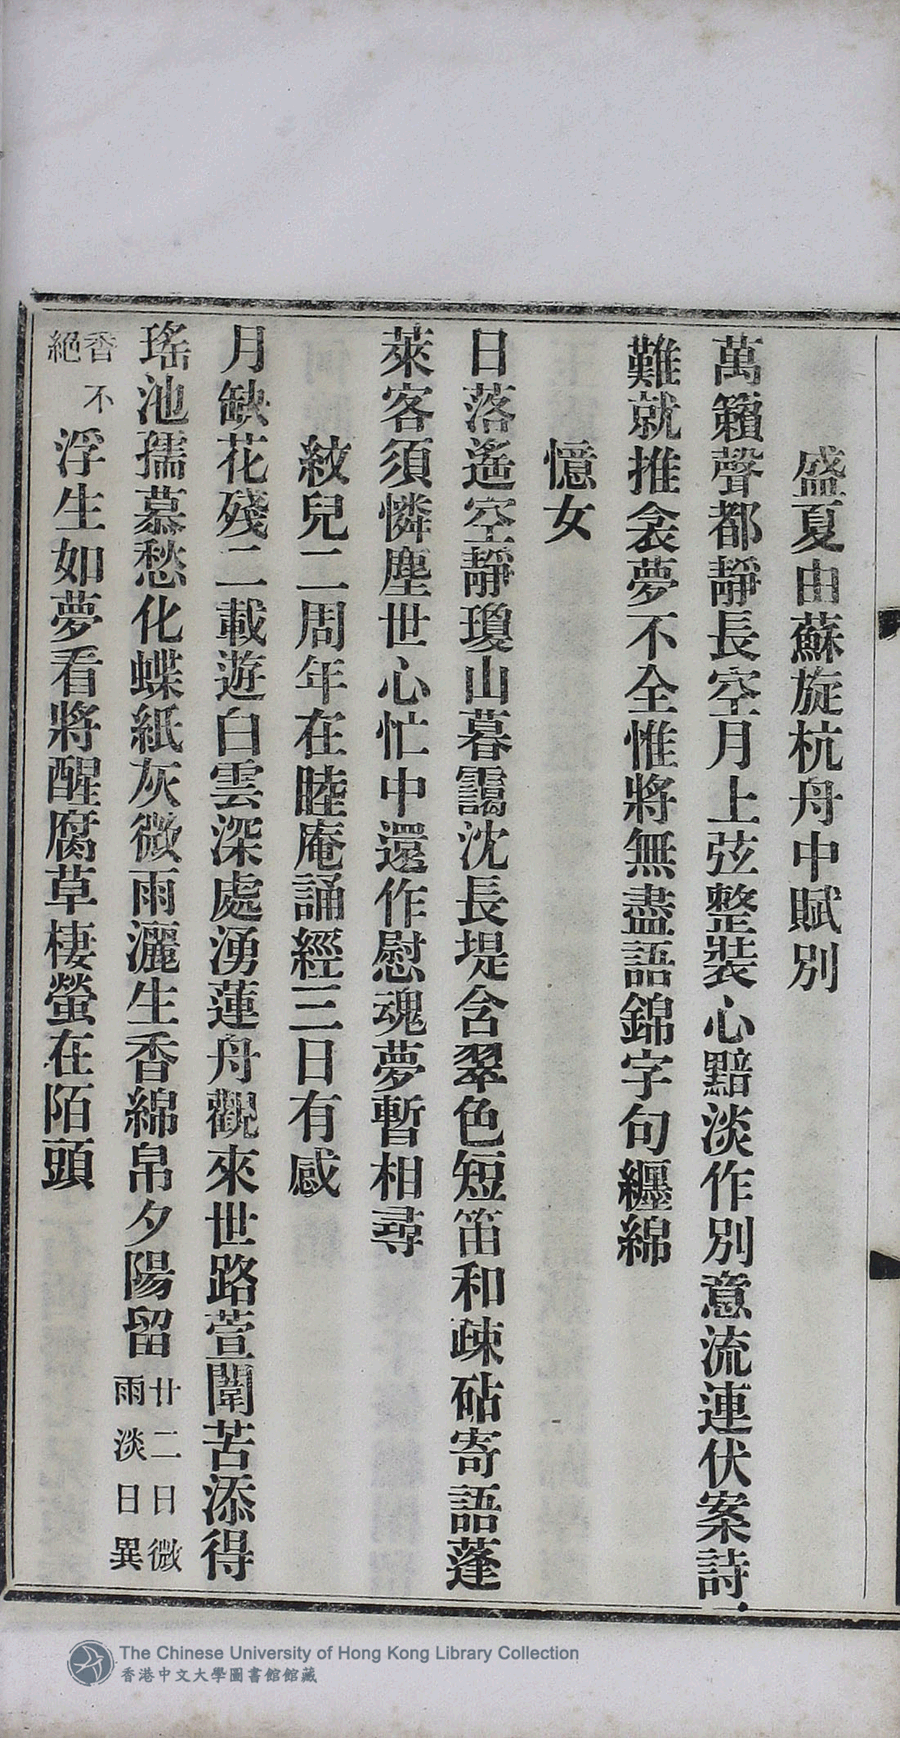 盛夏由蘇旋杭舟中賦別
萬籟聲都靜長空月上弦整裝心黯淡作別意流連伏案詩
難就推衾夢不全惟將無盡語錦字句纏綿
憶女
日落遙空靜瓊山暮靄沈長堤含翠色短笛和疎砧寄語蓬
萊客須憐塵世心忙中還作慰魂夢暫相尋
紋兒二周年在睦庵誦經三日有感
月缺花殘二載遊白雲深處湧蓮舟觀來世路萱闈苦添得
瑤池孺慕愁化蝶紙灰微雨灑生香綿帛夕陽留廿二日微雨淡日異
香不絕浮生如夢看將醒腐草棲螢在陌頭
The Chinese University of Hong Kong Library Collection
香港中文大學圖書館館藏